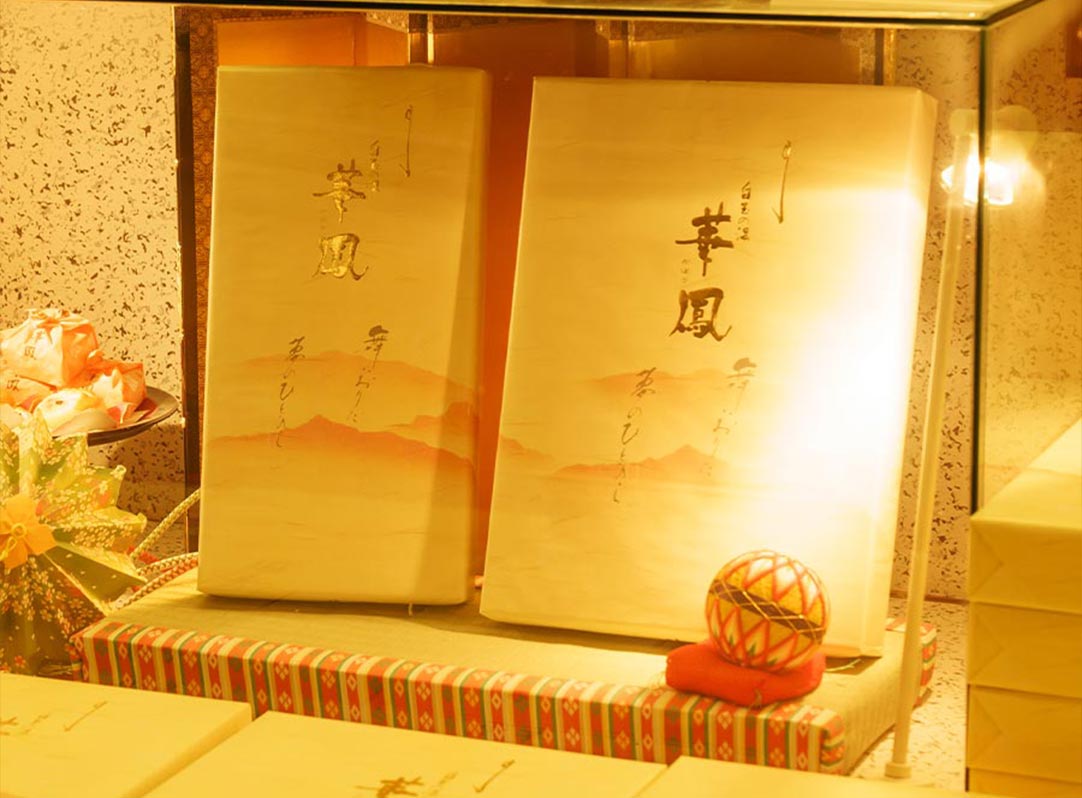 白玉の湯
華鳳
舞いおりた
夢のひととき
白玉の湯
華鳳
かほう
舞いおりた
夢のひととき